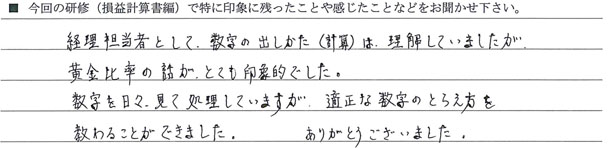 ■ 今回の研修（損益計算書編）で特に印象に残ったことや感じたことなどをお聞かせ下さい。
経理担当者として、数字の出しかた（計算）は、理解していましたが、
黄金比率の話が、とても印象的でした。
数字を日々、見て処理していますが、適正な数字のとらえ方を
教わることができました。　ありがとうございました。